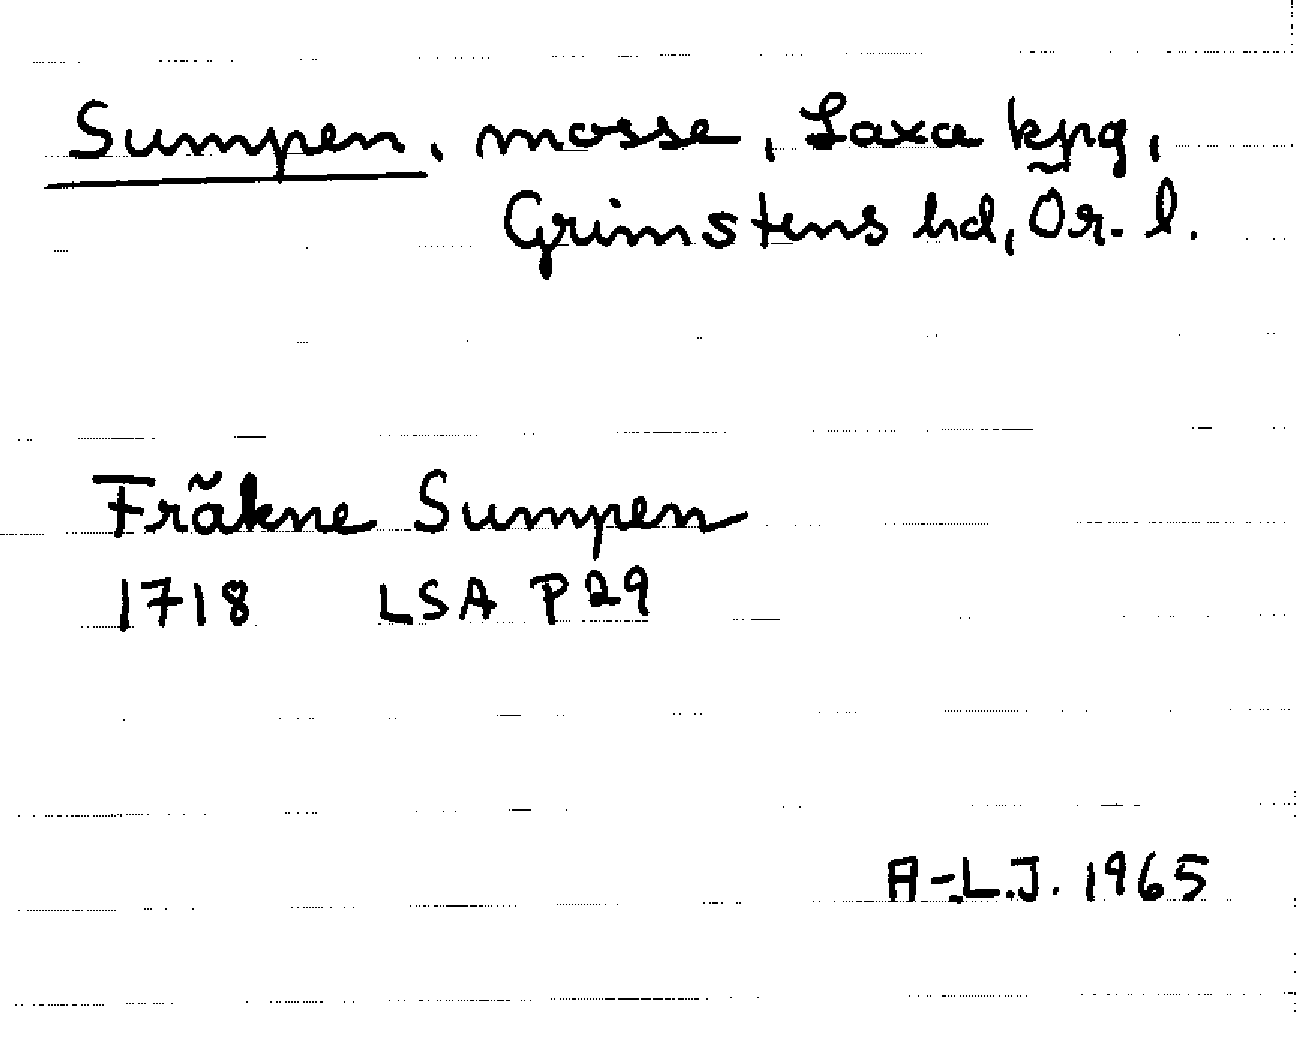 Sumpen, mosse, Laxa kpg,
Grimstens hd, Ör. l.
Fräkne Sumpen
1718 LSA P 29
A-L.J. 1965